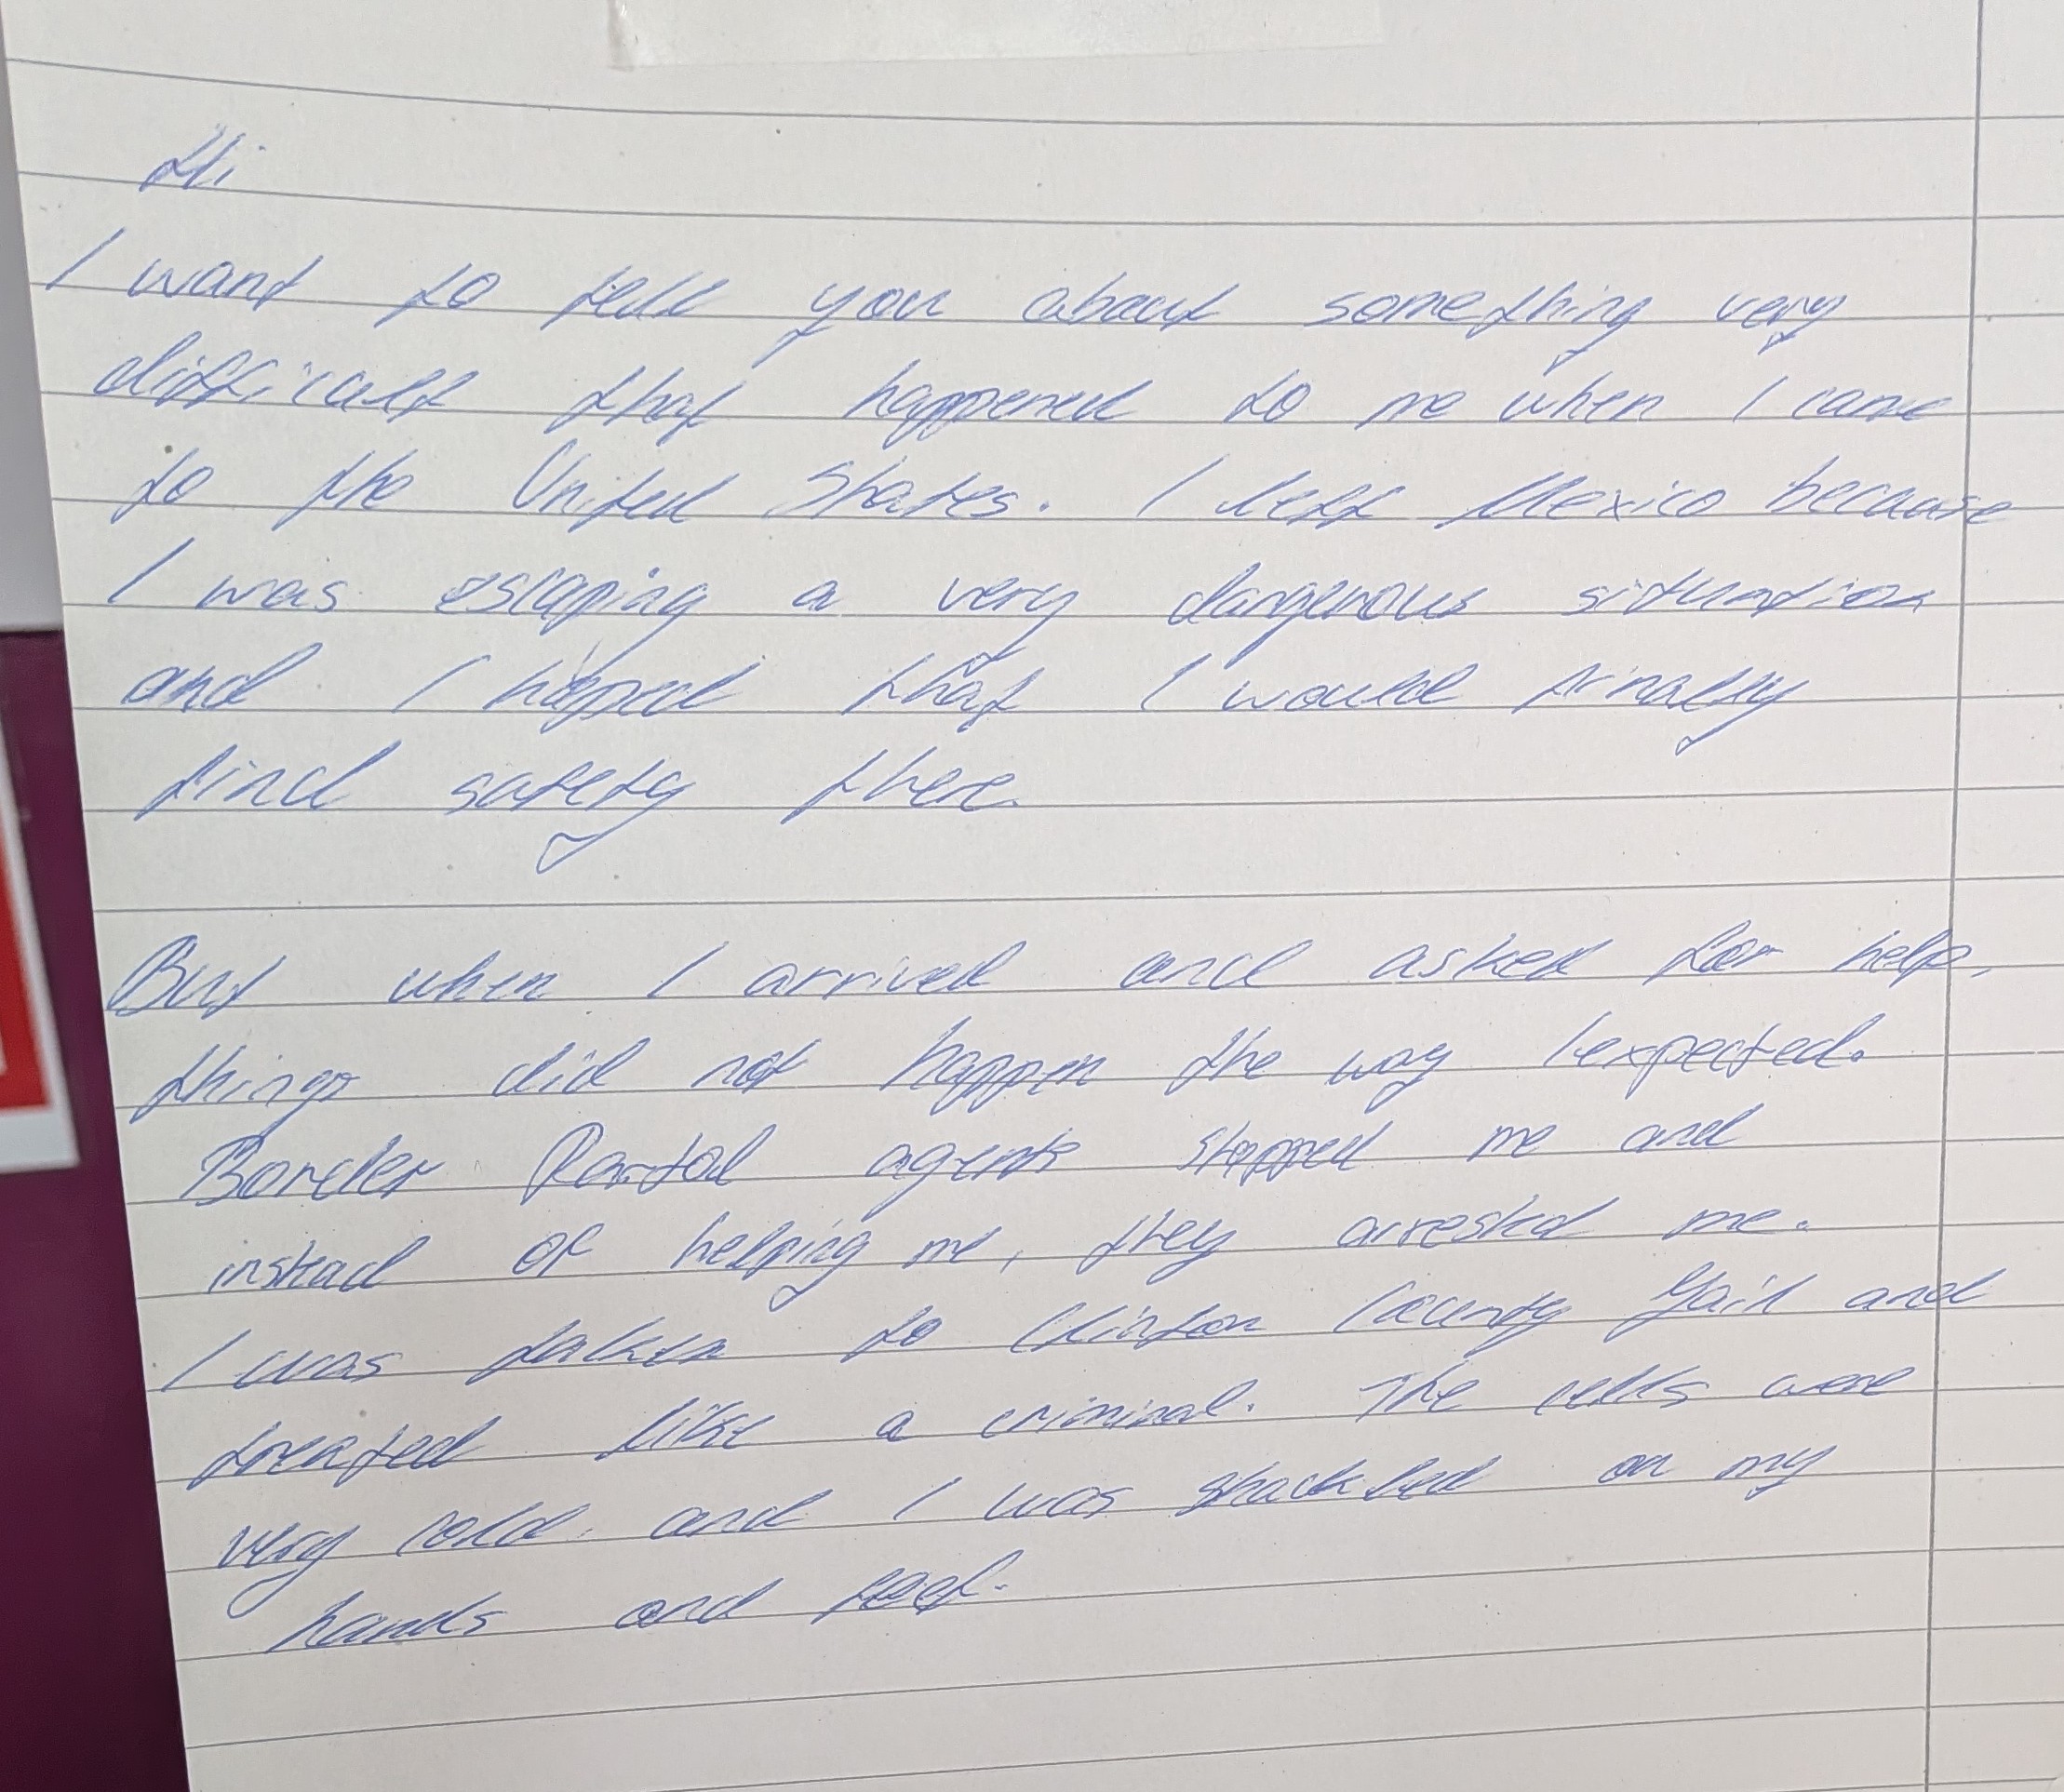 Hi
I want to tell you about something very
difficult that happened to me when I came
to the United States. I left Mexico because
I was escaping a very dangerous situation
and I hoped that I would finally
find safety there.
But when I arrived and asked for help,
things did not happen the way I expected.
Border Partol agents stopped me and
instead of helping me, they arrested me.
I was taken to Clinton County Jail and
treated like a criminal. The cells were
very cold, and I was shackled on my
hands and feet.